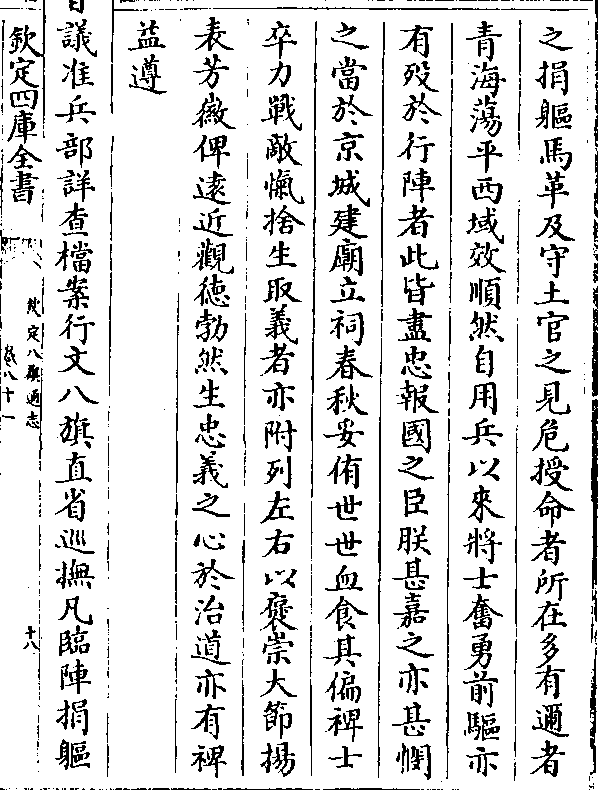 之捐軀馬革及守土官之見危授命者所在多有邇者
青海蕩平西域效順然自用兵以來將士奮勇前驅亦
有歿於行陣者此皆盡忠報國之臣朕甚嘉之亦甚憫
之當於京城建廟立祠春秋妥侑世世血食其偏裨士
卒力戰敵愾捨生取義者亦附列左右以褒崇大節揚
表芳徽俾遠近觀德勃然生忠義之心於治道亦有裨
益遵
旨議准兵部詳查檔案行文八旗直省巡撫凡臨陣捐軀
欽定四庫全書
欽定八旗通志
卷八十一
十八